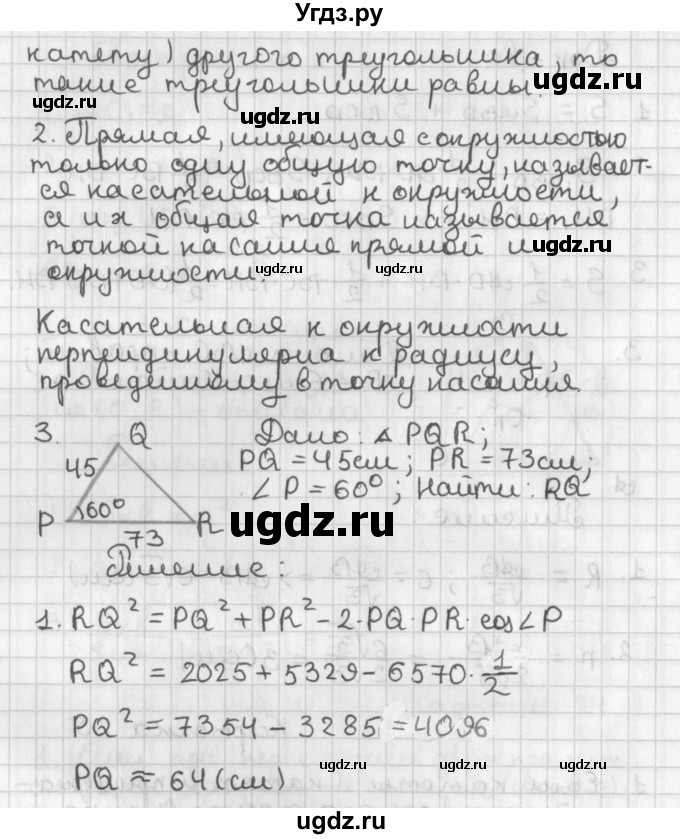 Угдз.ру
катету) другого треугольника, то
такие треугольники равны.
ugdz.ru ugdz.ru ugdz.ru
2. Прямая, имеющая с окружностью
только одну общую точку, называет-
ся касательной к окружности,
а их общая точка называется
точкой касания прямой и
ugdz.ru
окружности.
ugdz.ru ugdz.ru
Касательная к окружности
перпендикулярна к радиусу,
проведенному в точку касания.
3.
Q
45
P 60° R
73
Дано: △ PQR;
PQ = 45см; PR = 73см;
∠P = 60°; Найти: RQ
ugdz.ru
Решение:
1. RQ² = PQ² + PR² - 2·PQ·PR·cos∠P
RQ² = 2025 + 5329 - 6570·1/2
PQ² = 7354 - 3285 = 4096
PQ ≈ 64 (см)
ugdz.ru ugdz.ru ugdz.ru
ugdz.ru